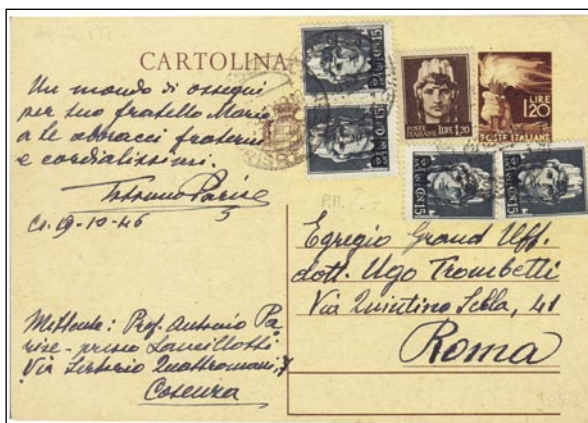 CARTOLINA
Un mondo di ossequi
per tuo fratello Mario
a te abbracci fraterni
e cordialissimi.
Parise
Cs. 19-10-46
Mittente: Prof. Antonio Pa
rise - presso Lancillotti
Via Sertorio Quattromani, 7
Cosenza
15 CENT. 15
15 CENT. 15
POSTE ITALIANE LIRE 1,20
LIRE
1,20
POSTE ITALIANE
15 CENT. 15
15 CENT. 15
P.M. 2.
Egregio Grand Uff.
dott. Ugo Trombetti
Via Quintino Sella, 41
Roma